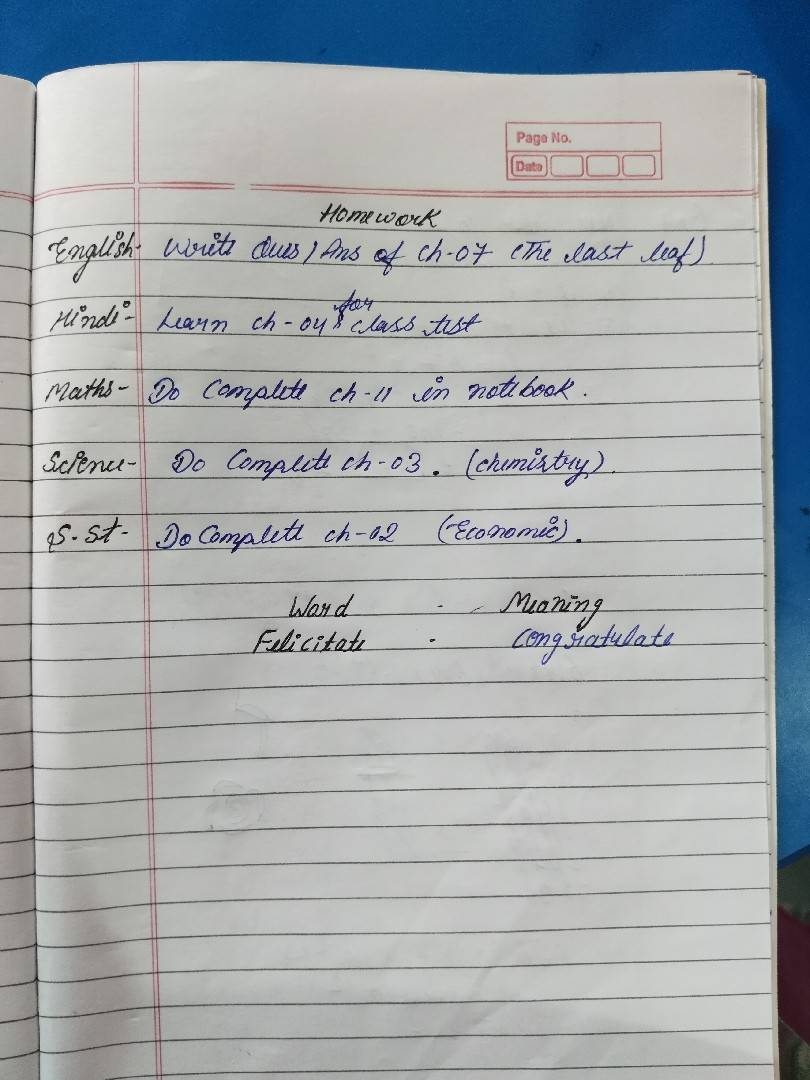 Page No.
Date
Homework
English- Write Ques/Ans of ch-07 (The last leaf)
Hindi- Learn ch-04 for class test
Maths- Do Complete ch-11 in notebook.
Science- Do Complete ch-03. (chemistry).
S.St- Do Complete ch-02 (Economic).
Word - Meaning
Felicitate - Congratulate